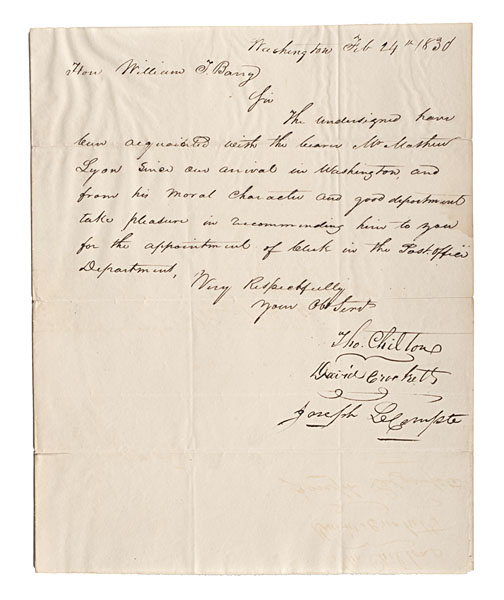 Washington Feb 24th 1830
Hon William T. Barry
Sir
The undersigned have
been acquainted with the bearer Mr Mathew
Lyon Since our arrival in Washington, and
from his moral Character and good department
take pleasure in recommending him to you
for the appointment of Clerk in the Post. Office
Department,
Very Respectfully
Your Obt Servts
Tho. Chilton
David Crockett
Joseph LeCompte